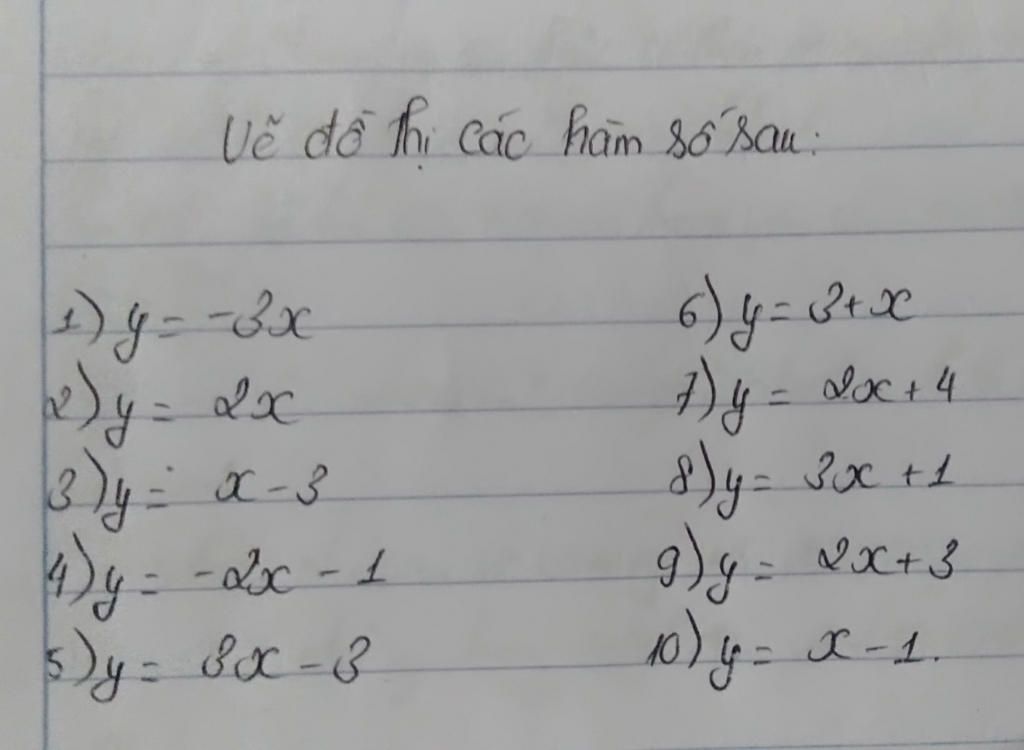 Vẽ đồ thị các hàm số sau:
1) y = -3x
2) y = 2x
3) y = x - 3
4) y = -2x - 1
5) y = 3x - 3
6) y = 3 + x
7) y = 2x + 4
8) y = 3x + 1
9) y = 2x + 3
10) y = x - 1.